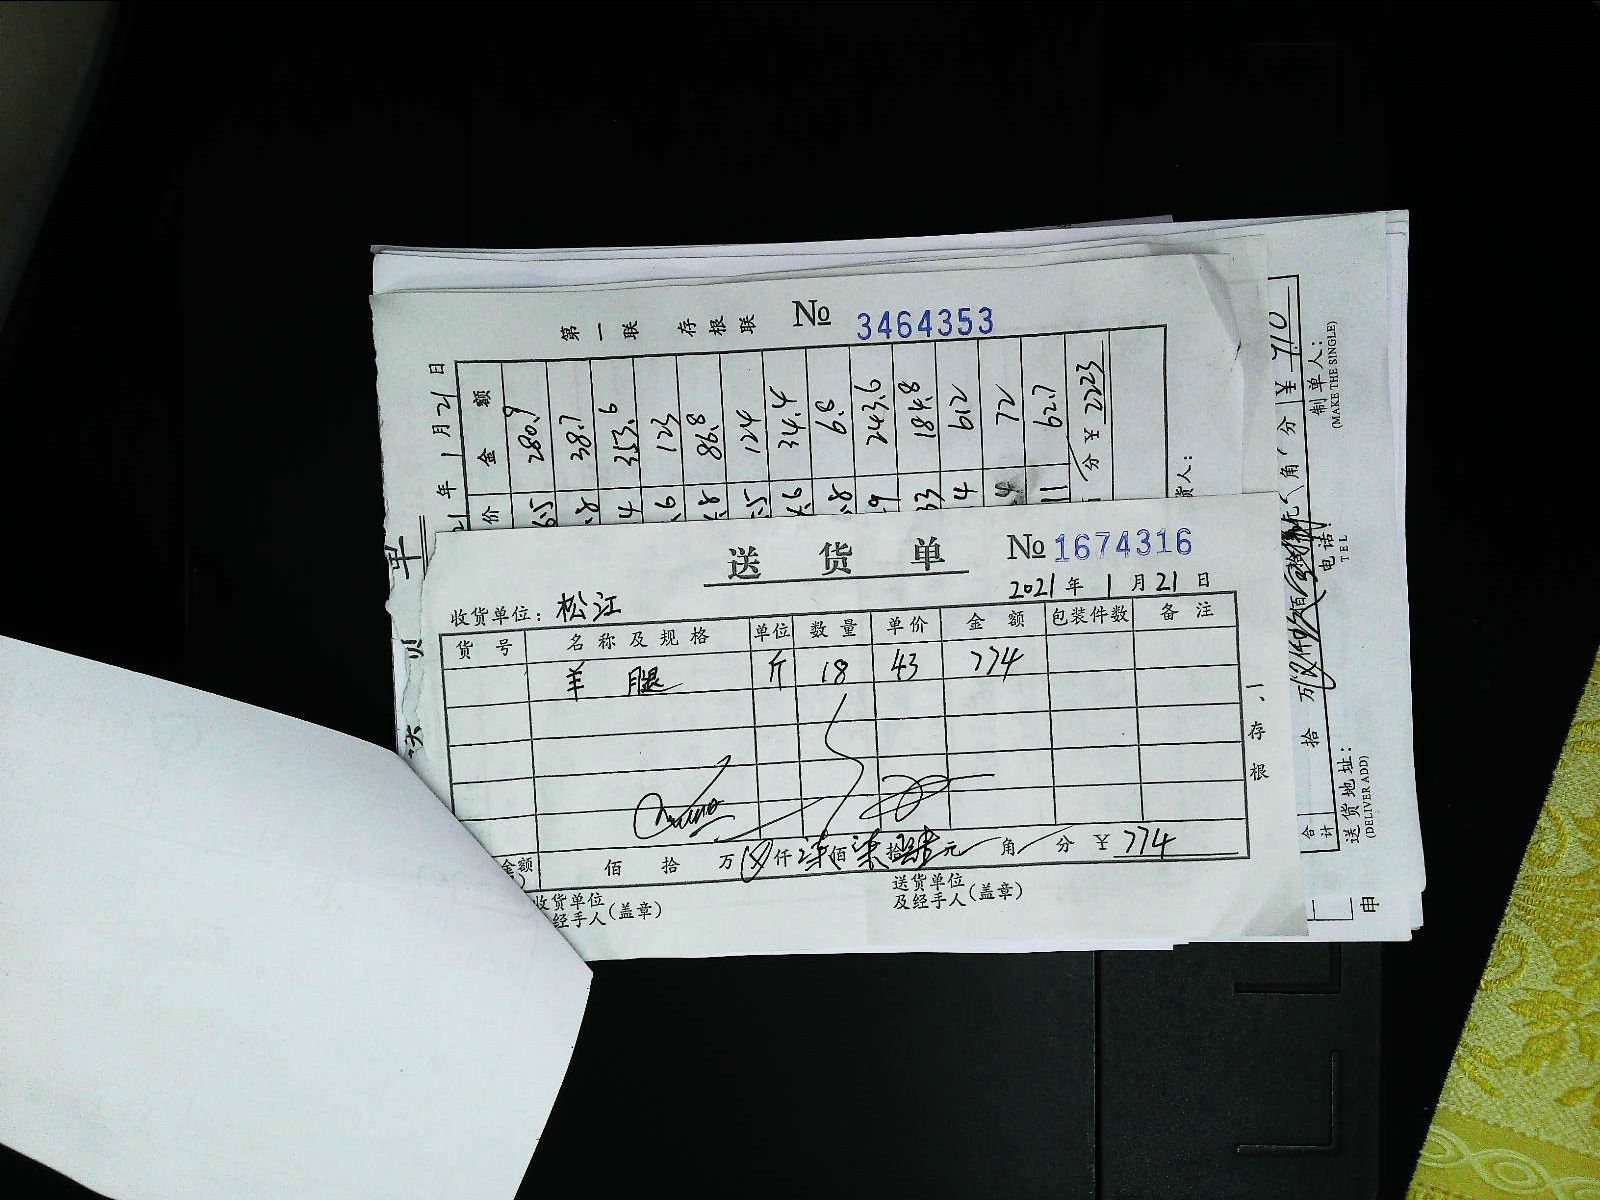 第一联 存根联 № 3464353
21年1月21日
价 金额
6.5 280.9
.8 38.7
4 353.6
.6 123
.8 86.8
.5 124
34.4
.8 6.8
.9 243.6
33 184.8
4 612
72
11 62.7
分 ¥ 2223
货人:
送货单 № 1674316
2021年1月21日
收货单位: 松江
货号 名称及规格 单位 数量 单价 金额 包装件数 备注
羊腿 斤 18 43 774
一、存根
金额 佰 拾 万 仟 柒佰柒拾肆元 角 分 ¥ 774
收货单位
经手人(盖章)
送货单位
及经手人(盖章)
合计 拾 万 仟 佰 角 分 ¥ 710
送货地址:
(DELIVER ADD)
电话:
TEL
制单人:
(MAKE THE SINGLE)